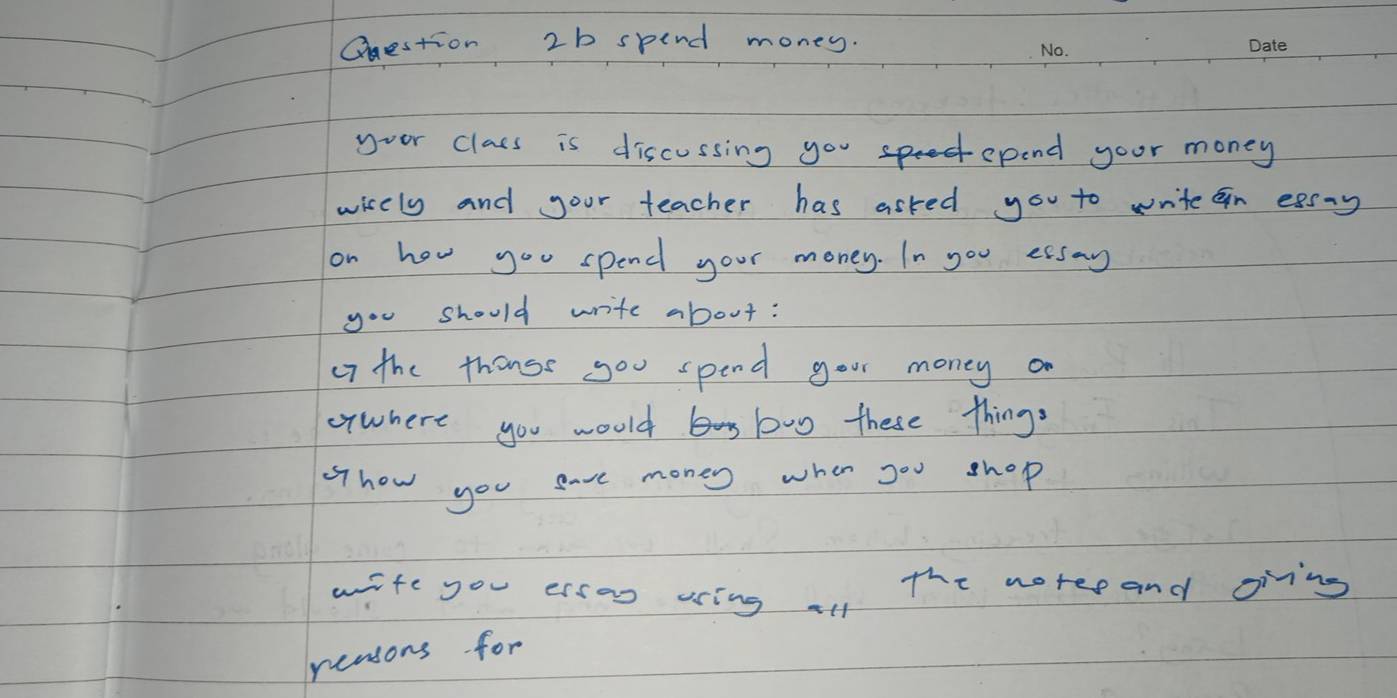 Question 2b spend money.
No. Date
your class is discussing you spend your money
wisely and your teacher has asked you to write an essay
on how you spend your money. In you essay
you should write about:
the things you spend your money on
where you would buy these things
how you save money when you shop
write you essay using all the notes and giving
reasons for